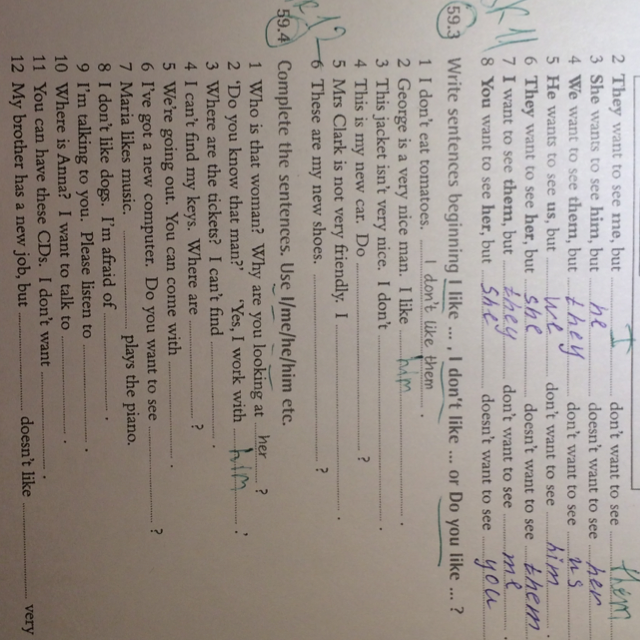 2 They want to see me, but I don't want to see them
3 She wants to see him, but he doesn't want to see her
4 We want to see them, but they don't want to see us
5 He wants to see us, but we don't want to see him
6 They want to see her, but she doesn't want to see them
7 I want to see them, but they don't want to see me
8 You want to see her, but she doesn't want to see you
59.3 Write sentences beginning I like ... , I don't like ... or Do you like ... ?
1 I don't eat tomatoes. I don't like them .
2 George is a very nice man. I like him .
3 This jacket isn't very nice. I don't .
4 This is my new car. Do ?
5 Mrs Clark is not very friendly. I .
6 These are my new shoes. ?
59.4 Complete the sentences. Use I/me/he/him etc.
1 Who is that woman? Why are you looking at her ?
2 'Do you know that man?' 'Yes, I work with him .'
3 Where are the tickets? I can't find .
4 I can't find my keys. Where are ?
5 We're going out. You can come with .
6 I've got a new computer. Do you want to see ?
7 Maria likes music. plays the piano.
8 I don't like dogs. I'm afraid of .
9 I'm talking to you. Please listen to .
10 Where is Anna? I want to talk to .
11 You can have these CDs. I don't want .
12 My brother has a new job, but doesn't like very